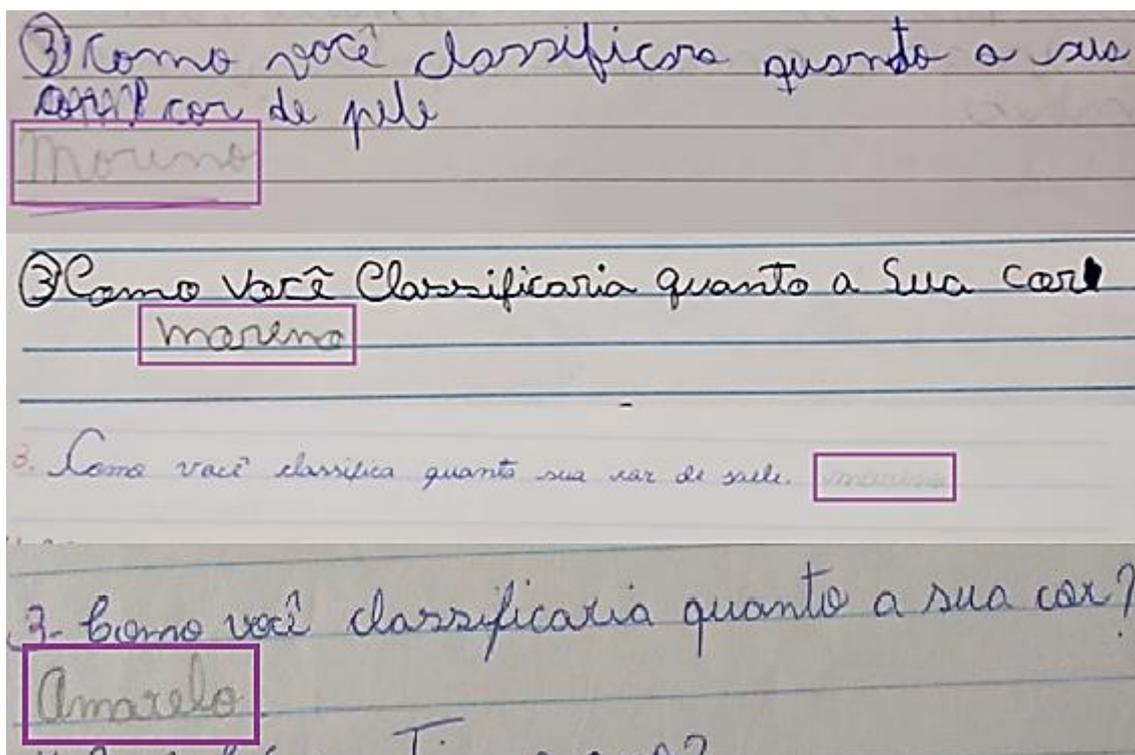 ③ Como você classificara quando a sua
cor de pele
Moreno
③ Como você Classificaria quanto a Sua Cor
moreno
3. Como você classifica quanto sua cor de pele.
3- Como você classificaria quanto a sua cor?
Amarelo